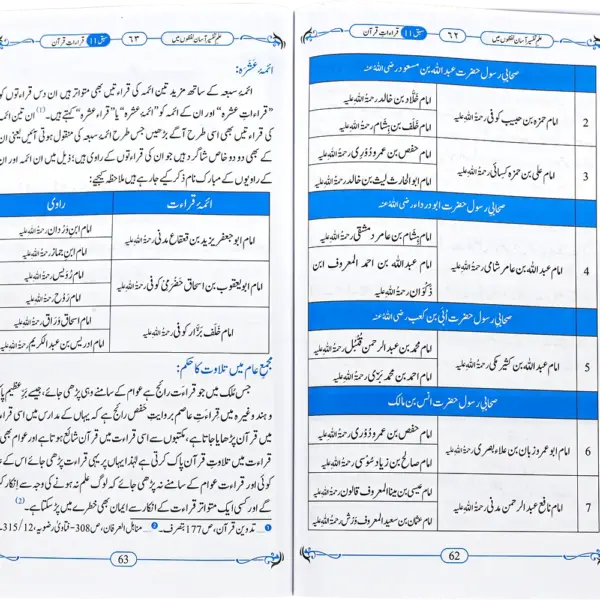 علم تفسیر آسان لفظوں میں ٦٢ سبق 11 قراءاتِ قرآن
صحابیِ رسول حضرت عبد اللہ بن مسعود رضی اللہ عنہ
2 امام حمزہ بن حبیب کوفی رحمۃ اللہ علیہ امام خَلَّاد بن خالد رحمۃ اللہ علیہ
امام خَلَف بن ہِشَام رحمۃ اللہ علیہ
3 امام علی بن حمزہ کسائی رحمۃ اللہ علیہ امام حفص بن عمرو دُوری رحمۃ اللہ علیہ
امام ابو الحارث لیث بن خالد رحمۃ اللہ علیہ
صحابیِ رسول حضرت ابو درداء رضی اللہ عنہ
4 امام عبد اللہ بن عامر شامی رحمۃ اللہ علیہ امام ہِشَام بن عامر دمشقی رحمۃ اللہ علیہ
امام عبد اللہ بن احمد المعروف ابن
ذَکْوَان رحمۃ اللہ علیہ
صحابیِ رسول حضرت اُبَی بن کعب رضی اللہ عنہ
5 امام عبد اللہ بن کثیر مکی رحمۃ اللہ علیہ امام محمد بن عبد الرحمن قُنْبُل رحمۃ اللہ علیہ
امام احمد بن محمد بَزِّی رحمۃ اللہ علیہ
صحابیِ رسول حضرت انس بن مالک
6 امام ابو عمرو زبان بن علاء بصری رحمۃ اللہ علیہ امام حفص بن عمرو دُوری رحمۃ اللہ علیہ
امام صالح بن زیاد سُوسی رحمۃ اللہ علیہ
7 امام نافع عبد الرحمن مدنی رحمۃ اللہ علیہ امام عیسی بن مینا المعروف قالون رحمۃ اللہ علیہ
امام عثمان بن سعید المعروف وَرْش رحمۃ اللہ علیہ
62
علم تفسیر آسان لفظوں میں ٦٣ سبق 11 قراءاتِ قرآن
ائمۂ عَشَرہ:
ائمۂ سبعہ کے ساتھ مزید تین ائمہ کی قراءتیں بھی متواتر ہیں ان دس قراءتوں کو
”قراءاتِ عشرہ“ اور ان کے ائمہ کو ”ائمۂ عشرہ“ یا ”قراءِ عشرہ“ کہتے ہیں۔ (1) ان تین ائمہ
کی قراءتیں بھی اسی طرح آگے بڑھیں جس طرح ائمۂ سبعہ کی منقول ہوتی آئیں یعنی ان
کے بھی دو دو خاص شاگرد ہیں جو ان کی قراءتوں کے راوی ہیں؛ ذیل میں ان ائمہ اور ان
کے راویوں کے مبارک نام ذکر کیے جا رہے ہیں ملاحظہ کیجیے:
ائمۂ قراءت راوی
امام ابو جعفر یزید بن قعقاع مدنی رحمۃ اللہ علیہ امام ابن وَرْدان رحمۃ اللہ علیہ
امام ابن جماز رحمۃ اللہ علیہ
امام ابو یعقوب بن اسحاق حَضْرَمی کوفی رحمۃ اللہ علیہ امام رُوَیس رحمۃ اللہ علیہ
امام رَوْح رحمۃ اللہ علیہ
امام خَلَف بَزَّار کوفی رحمۃ اللہ علیہ امام اسحاق وَرَاق رحمۃ اللہ علیہ
امام ادریس بن عبد الکریم رحمۃ اللہ علیہ
مجمعِ عام میں تلاوت کا حکم:
جس مُلک میں جو قراءت رائج ہے عوام کے سامنے وہی پڑھی جائے، جیسے برِّ عظیم
و ہند وغیرہ میں قراءتِ عاصم بروایتِ حفص رائج ہے کہ یہاں کے مدارس میں اسی
میں قرآن پڑھایا جاتا ہے، مکتبوں سے اسی قراءت میں قرآن شائع ہوتا ہے اور عوام بھی
قراءت میں تلاوتِ قرآنِ پاک کرتی ہے لہٰذا یہاں پر یہی قراءت پڑھی جائے اس کے
کوئی اور قراءت عوام کے سامنے نہ پڑھی جائے کہ لوگ علم نہ ہونے کی وجہ سے اِنکار
گے اور کسی ایک متواتر قراءت کے انکار سے ایمان بھی خطرے میں پڑ سکتا ہے۔ (2)
1 ... تدوین قرآن، ص 177 بتصرف۔ 2 ... مناہل العرفان، ص 308- فتاویٰ رضویہ، 12/315
63